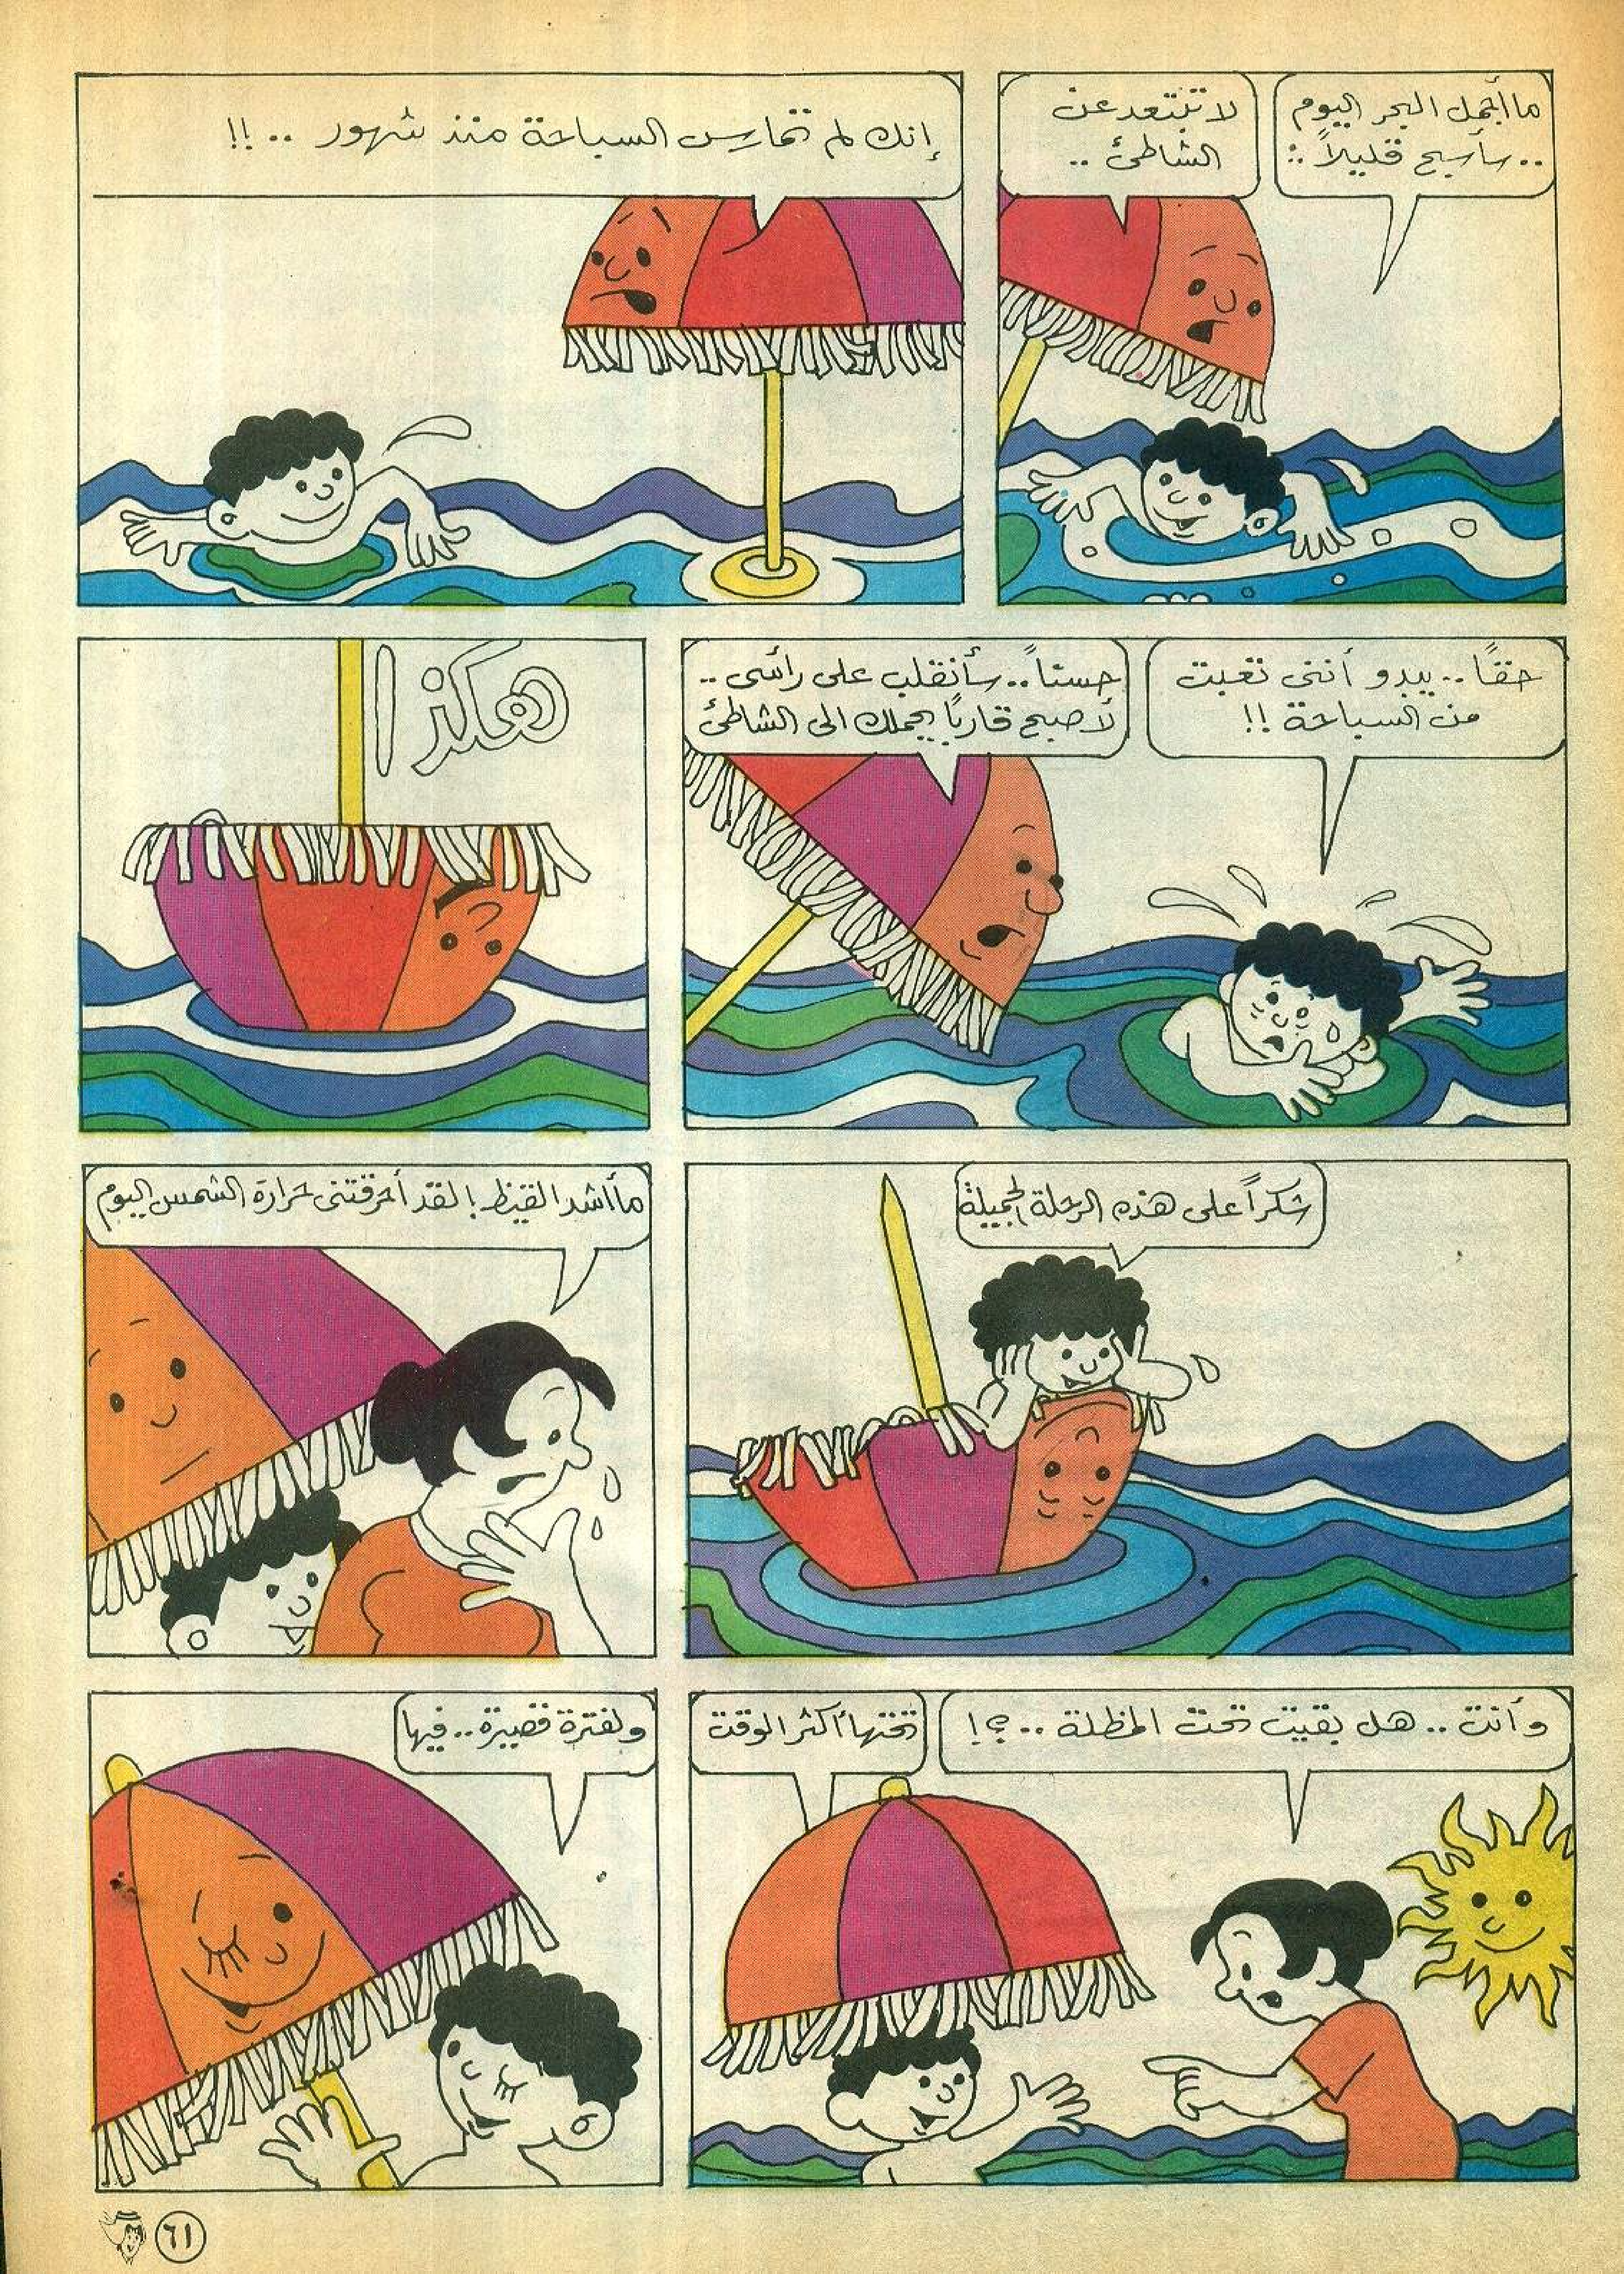 ما أجمل البحر اليوم
.. سأسبح قليلاً ..
لا تبتعد عن
الشاطئ ..
إنك لم تمارس السباحة منذ شهور .. !!
حقاً .. يبدو أننى تعبت
من السباحة !!
حسناً .. سأنقلب على رأسى ..
لأصبح قارباً يحملك الى الشاطئ
هكذا
شكراً على هذه الرحلة الجميلة
ما أشد القيظ ! لقد أحرقتنى حرارة الشمس اليوم
وأنت .. هل بقيت تحت المظلة .. ؟!
تحتها أكثر الوقت
ولفترة قصيرة .. فيها
٦١